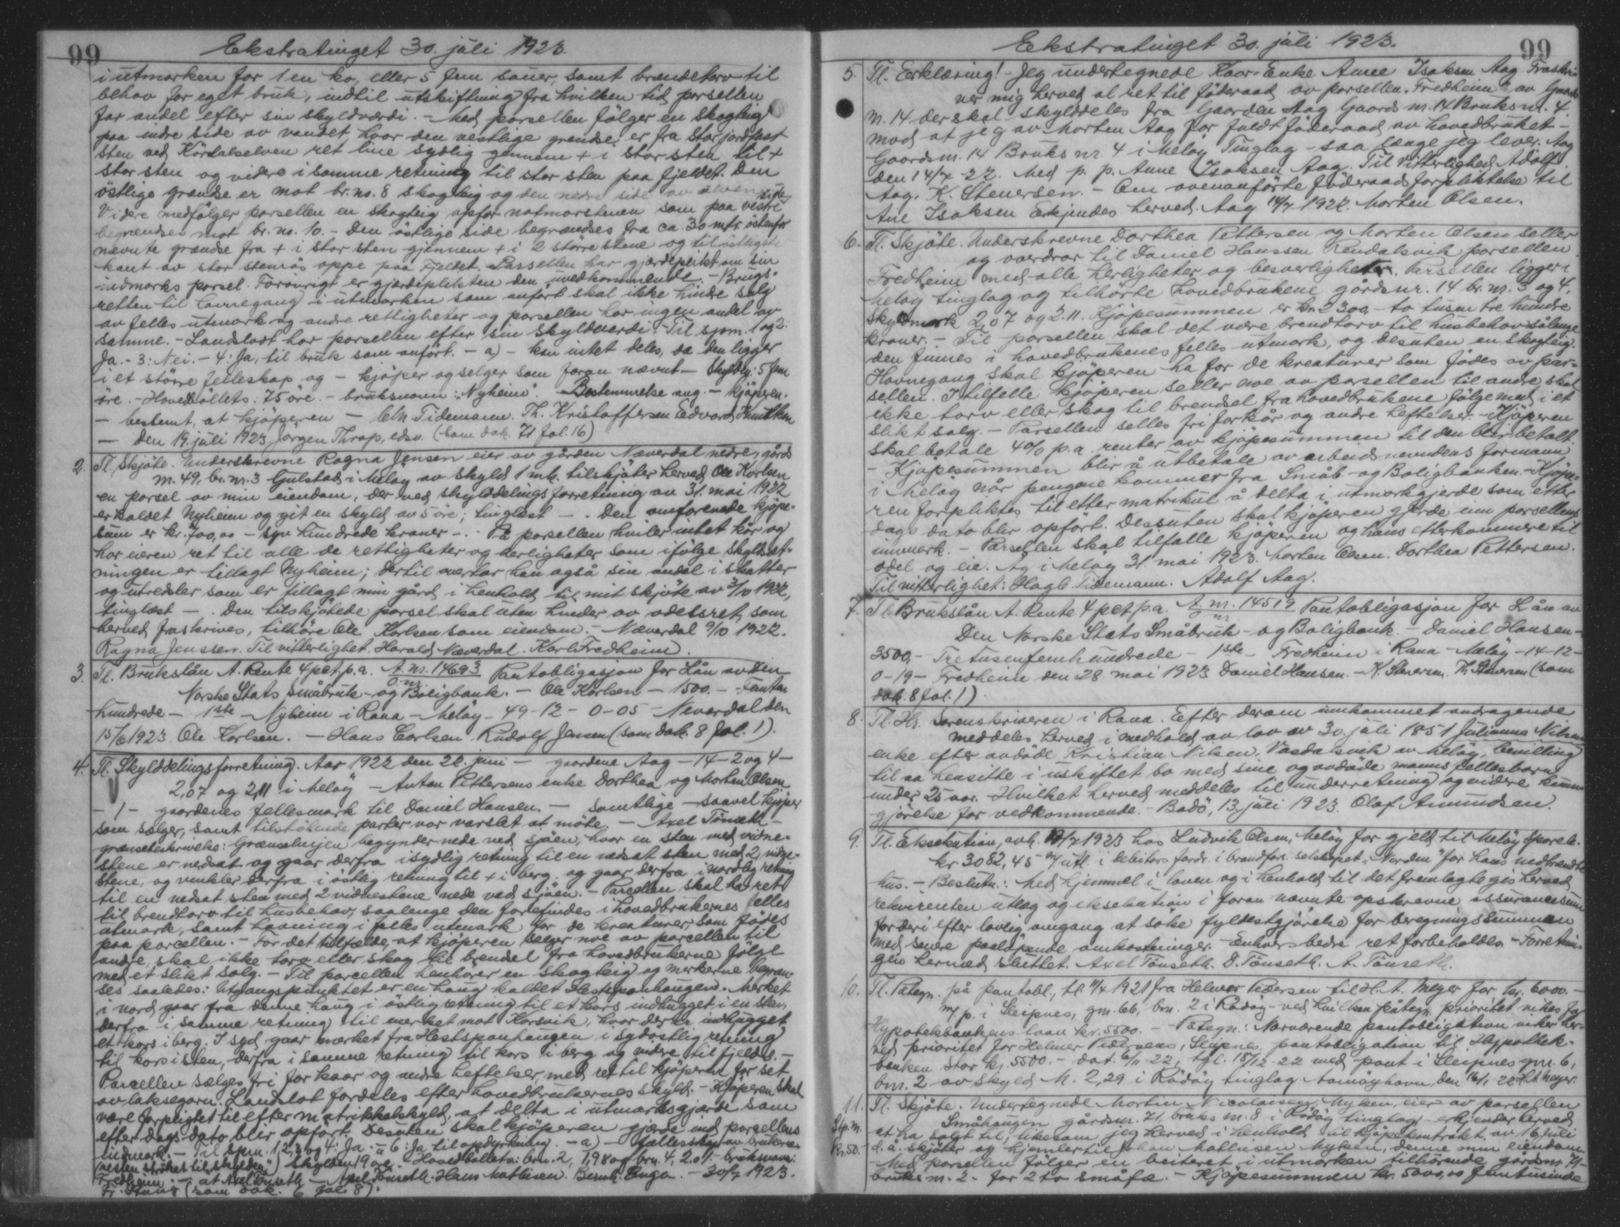 99 Ekstratinget 30. juli 1923.
i utmarken for 1 en ko, eller 5 fem sauer, samt brændetorv til
behov for eget bruk, indtil utskiftning fra hvilken tid parsellen
far andel efter sin skyldværdi. - Med parsellen følger en skogteig
paa indre side av vandet hvor den vestlige grændse er fra stor jordfast
sten ved Kördalselven ret line sydlig gjennem + i stor sten til +
stor sten og videre i samme retning til stor sten paa fjeldet. Den
östlige grændse er mot br.no. 8 skogteig og den nedre side av elven
Videre medfølger parsellen en skogteig ovenfor natmorstenen som paa vestre
begrændses mot br. no. 10. - Den östlige side begrændses fra ca. 30 mtr. östenfor
nævnte grændse fra + i stor sten gjennem + i 2 större stene og til östligste
kant av stor stenrös oppe paa Fjeldet. Parsellen har gjærdeplikt om sin
indmarks parsel. Forövrigt er gjærdeplikten den uvedkommende. - Brugs-
retten til havnegang i utmarken som anfört skal ikke hindre salg
av felles utmark og andre rettigheter og parsellen har ingen andel av
samme. - Landslodt har parsellen efter sin skyldværdi. Til spm. 1 og 2:
Ja. - 3: Nei. - 4: Ja, til bruk som anfört. - a) - kan intet deles, da den ligger
i et större felleskap og - kjöper og selger som foran nævnt - Skyldg: 5 fem
öre. - Hovedbollets: 75 öre. - bruksnavn: Nyheim. Bestemmelse ang. - kjöperen.
- bestemt, at kjöperen - Chr. Tidemann. Th. Kristoffersen Edvard Knudsen
- den 19. juli 1923 Jørgen Thrap, edsv. (som dok. 71 fol. 16)
2. Tl. Skjöte. Underskrevne Ragna Jensen eier av gården Næverdal nedre, gårds
nr. 49, br. nr. 3 Gulstad i Melöy av skyld 1 mk. tilskjöter herved Ole Karlsen
en parsel av min eiendom, der ved skylddelingsforretning av 31. mai 1922
er kaldet Nyheim og git en skyld av 5 öre; tinglæst - . Den omforenede kjöpe-
sum er kr. 700,00 - syv hundrede kroner - . På porsellen hviler intet kår og
har ieren ret til alle de rettigheter og herligheter som ifölge skyldset-
ningen er tillagt Nyheim; dertil overtar han også sin andel i skatter
og utredsler som er pillagt min gård i henhold til mit skjöte av 3/10 1922,
tinglæst - . Den tilskjötede parsel skal uten hinder av odelsret, som
herved fraskrives, tilhöre Ole Karlsen som eiendom. Næverdal 9/10 1922.
Ragna Jensen. Til vitterlighet: Harald Næverdal. Karl Fredheim.
3. Tl. Brukslån A. Rente 4 pct. p.a. A. nr. 14693 Pantobligasjon for Lån av den
Norske Stats Småbruk- og Boligbank. - Ole Karlsen - 1500. - Femten
hundrede - 1ste - Nyheim i Rana - Melöy - 49-12 - 0-05 Neverdal den
15/6 1923 Ole Karlsen. - Hans Carlsen. Rudolf Jensen (som dok. 8 fol. 1).
4. Tl. Skylddelingsforretning. Aar 1922 den 22. juni - gaardene Aag - 14 - 2 og 4 -
2,07 og 2,11 i Melöy - Anton Pettersens enke Dorthea og Morten Olsen
- 1 - gaardens fellesmark til Daniel Hansen. - Samtlige - saavel kjøper
som sælger, samt tilstøtende parter var varslet at möte. - Axel Tönseth -
grænsebeskrivelse: Grænselinjen begynder nede ved sjøen, hvor en sten med vidne-
stene er nedsat og gaar derfra i sydlig retning til en nedsat sten med 2 vidne-
stene, og vinkler derfra i östlig retning til + i berg og gaar derfra i nordlig retning
til en nedsat sten med 2 vidnestene nede ved sjöen. - Parcellen skal ha ret
til brendtorv til husbehov, saalenge den forefindes i hovedbrukernes felles
utmark, samt havning i felles utmark for de kreaturer som födes
paa parcellen. - For det tilfælde, at kjöperen selger noe av parcellen til
andre, skal ikke torv eller skog til brendsel fra hovedbrukerne følge
med et slikt salg. - Til parcellen henhörer en skogteig og merkerne begræn-
ses saaledes: Utgangspunktet er en haug kaldet Hestspanhaugen. Merket
i nord gaar fra denne haug i östlig retning til et kors indhugget i en sten,
derfra i samme retning til merket mot Korsvik, hvor der er indhugget
et kors i berg. I syd gaar merket fra Hestspanhaugen i sydöstlig retning
til kors i sten, derfra i samme retning til kors i berg og videre til fjelds. -
Parcellen sælges fri for kaar og andre heftelser med ret til kjöperen for set
av laksegarn. Landslot fordeles efter hovedbrukernes skyld. - Kjöperen skal
være forpligtet til efter matrikkelskyld, at delta i utmarksgjærde som
efter dags dato blir opført. Desuten skal kjöperen gjærde ved parcellens
indmark. - Til spm. 1, 2, 3 og 4: Ja - 6 Ja til opdyrkning. - a) - Fællesskap av brukernes
skylden 19 öre Hovedbollets: brn. 2, 1,98 og brn. 4, 2.01. - Bruksnavn:
Fredheim - at Axel Tönseth - Axel Tönseth Hans Mathisen Bernt Enga. 30/7 1923.
(som dok. 6 fol. 8).
Ekstratinget 30. juli 1923. 99
5. Tl. Erklæring! - Jeg undertegnede Kaar-Enke Anne Isaksen Aag Fraskri
ver mig herved al ret til föderaad av parsellen "Fredheim" av Gaards
nr. 14 der skal skylddeles fra Gaarden Aag Gaards nr. 14 Bruks nr. 4.
mod at jeg av Morten Aag for fuldt föderaad av hovedbruket -
Gaards nr. 14 Bruks nr. 4 i Meløy Tinglag - saa længe jeg lever. Aag
den 14/7 - 22. Med p. p. Anne Isaksen Aag. Til vitterlighed Adolf
Aag. K. Stenersen. - Om ovenanförte föderaads forpliktelse til
Ane Isaksen Erkjendes herved. Aag 14/7 1922. Morten Olsen.
6. Tl. Skjöte. Underskrevne Dorthea Pettersen og Morten Olsen seller
og overdrar til Daniel Hansen Kendalsvik porsellen
Fredheim med alle herligheter og besværligheter. Parsellen ligger i
Meløy tinglag og tilhörte hovedbrukene gårds nr. 14 br. nr. 3 og 4.
Skyldmark 2,07 og 2.11. Kjöpesummen er kr. 2300,- to tusen tre hundre
kroner. - Til porsellen skal det være brendtorv til husbehov sålenge
den finnes i hovedbrukenes felles utmark, og desuten en skogteig.
Havnegang skal kjöperen ha for de kreaturer som födes av par-
sellen. I tilfelle kjöperen seller noe av porsellen til andre skal
ikke torv eller skog til brendsel fra hovedbrukene fölge med i et
slikt salg. - Parsellen selles fri for kår og andre heftelser. - Kjöperen
skal betale 4% p.a. renter av kjöpesummen til den blir betalt.
- Kjöpesummen blir å utbetale av arbeidsnemndens formann
i Meløy når pengene kommer fra Småb- og Boligbanken. - Kjöpe-
ren forpliktes til efter matrikul å delta i utmarksgjerde som efter
dags dato blir opfört. Dessuten skal kjöperen gjerde um porsellens
innmark. - Parsellen skal tilfalle kjöperen og hans etterkommere til
odel og eie. Ag i Meløy 31. mai 1923. Morten Olsen. Dorthea Pettersen.
Til vitterlighet: Hagb. Tidemann. Adolf Aag.
7. Tl. Brukslån A. Rente 4 pct. p.a. A. nr. 14519 Pantobligasjon for Lån av
Den Norske Stats Småbruk- og Boligbank. - Daniel Hansen -
3500,- Tre tusenfemhundrede - 1ste - Fredheim i Rana - Meløy - 14-12 -
0-19 - Fredheim den 28. mai 1923 Daniel Hansen. - K. Stenersen. (som
dok. 8 fol. 1).
8. Tl. Hr. Sorenskriveren i Rana. Efter derom innkommet andragende
meddeles herved i medhold av lov av 30. juli 1851 Julianna Nilsen
enke efter avdöde Kristian Nilsen, Vasdalsvik av Meløy, bevilling
til aa hensitte i uskiftet bo med sine og avdöde manns fellesbarn
under 25 aar. Hvilket herved meddeles til underretning og videre kunn-
gjörelse for vedkommende. Bodö, 13. juli 1923. Olaf Amundsen.
9. Tl. Eksekution, avh. 19/7 1923 hos Ludvik Olsen, Meløy for gjeld til Meløy Spareb.
kr. 3082,45 i debitors fordr. i brandfor. selskapet, Norden for hans nedbrendte
hus. - Beslutn.: Med hjemmel i loven og i henhold til det fremlagte gis herved
rekvirenten utleg og eksekution i foran nævnte opskrevne assurancesum
for deri efter lovlig omgang at söke fyldestgjörelse for beregningssummen
med senere paaløpende omkostninger. - Enhvers bedre ret forbeholdes. - Forretnin-
gen hermed sluttet. Axel Tönseth. D. Tönseth. A. Tönseth.
10. Tl. Påtegn. på pantobl., tl. 1921 fra Helmer Pedersen til H. A. Meyer for kr. 6000. -
m/ p. i Sleipnes, gnr. 66, brn. 2 i Rödöy - ved hvilken påtegn. prioritet vikes for
Hypotekbankens laan kr. 5500. - Påtegn: Nærværende pantobligation viker her-
ved prioritet for Helmer Pedersens, Sleipnes, pantobligation til Hypothek-
banken stor kr. 5500. - dat. 6/11 22, tgl. 15/12 22 med pant i Sleipnes gnr. 6,
brn. 2 av skyld M. 2,29 i Rödöy tinglag. Annöyhavn, den 16/1 22 H. A. Meyer.
11. Tl. Skjöte. Undertegnede Martin Nicolaisen Myken, eier av parsellen
Småhaugen gårdsnr. 71 bruks nr. 8 i Rödöy tinglag - kjender herved
at ha solgt til, likesom jeg herved i henhold til kjöpekontrakt av 16 juli
d. å. skjöter og hjemler til Johan Mathisen Myken, denne min eiendom.
Med parsellen fölger en beiteret i utmarken tilhörende gårds nr. 71
bruks nr. 2. for 2 to småfæ. - Kjöpesummen kr. 5000,00 femtusinde